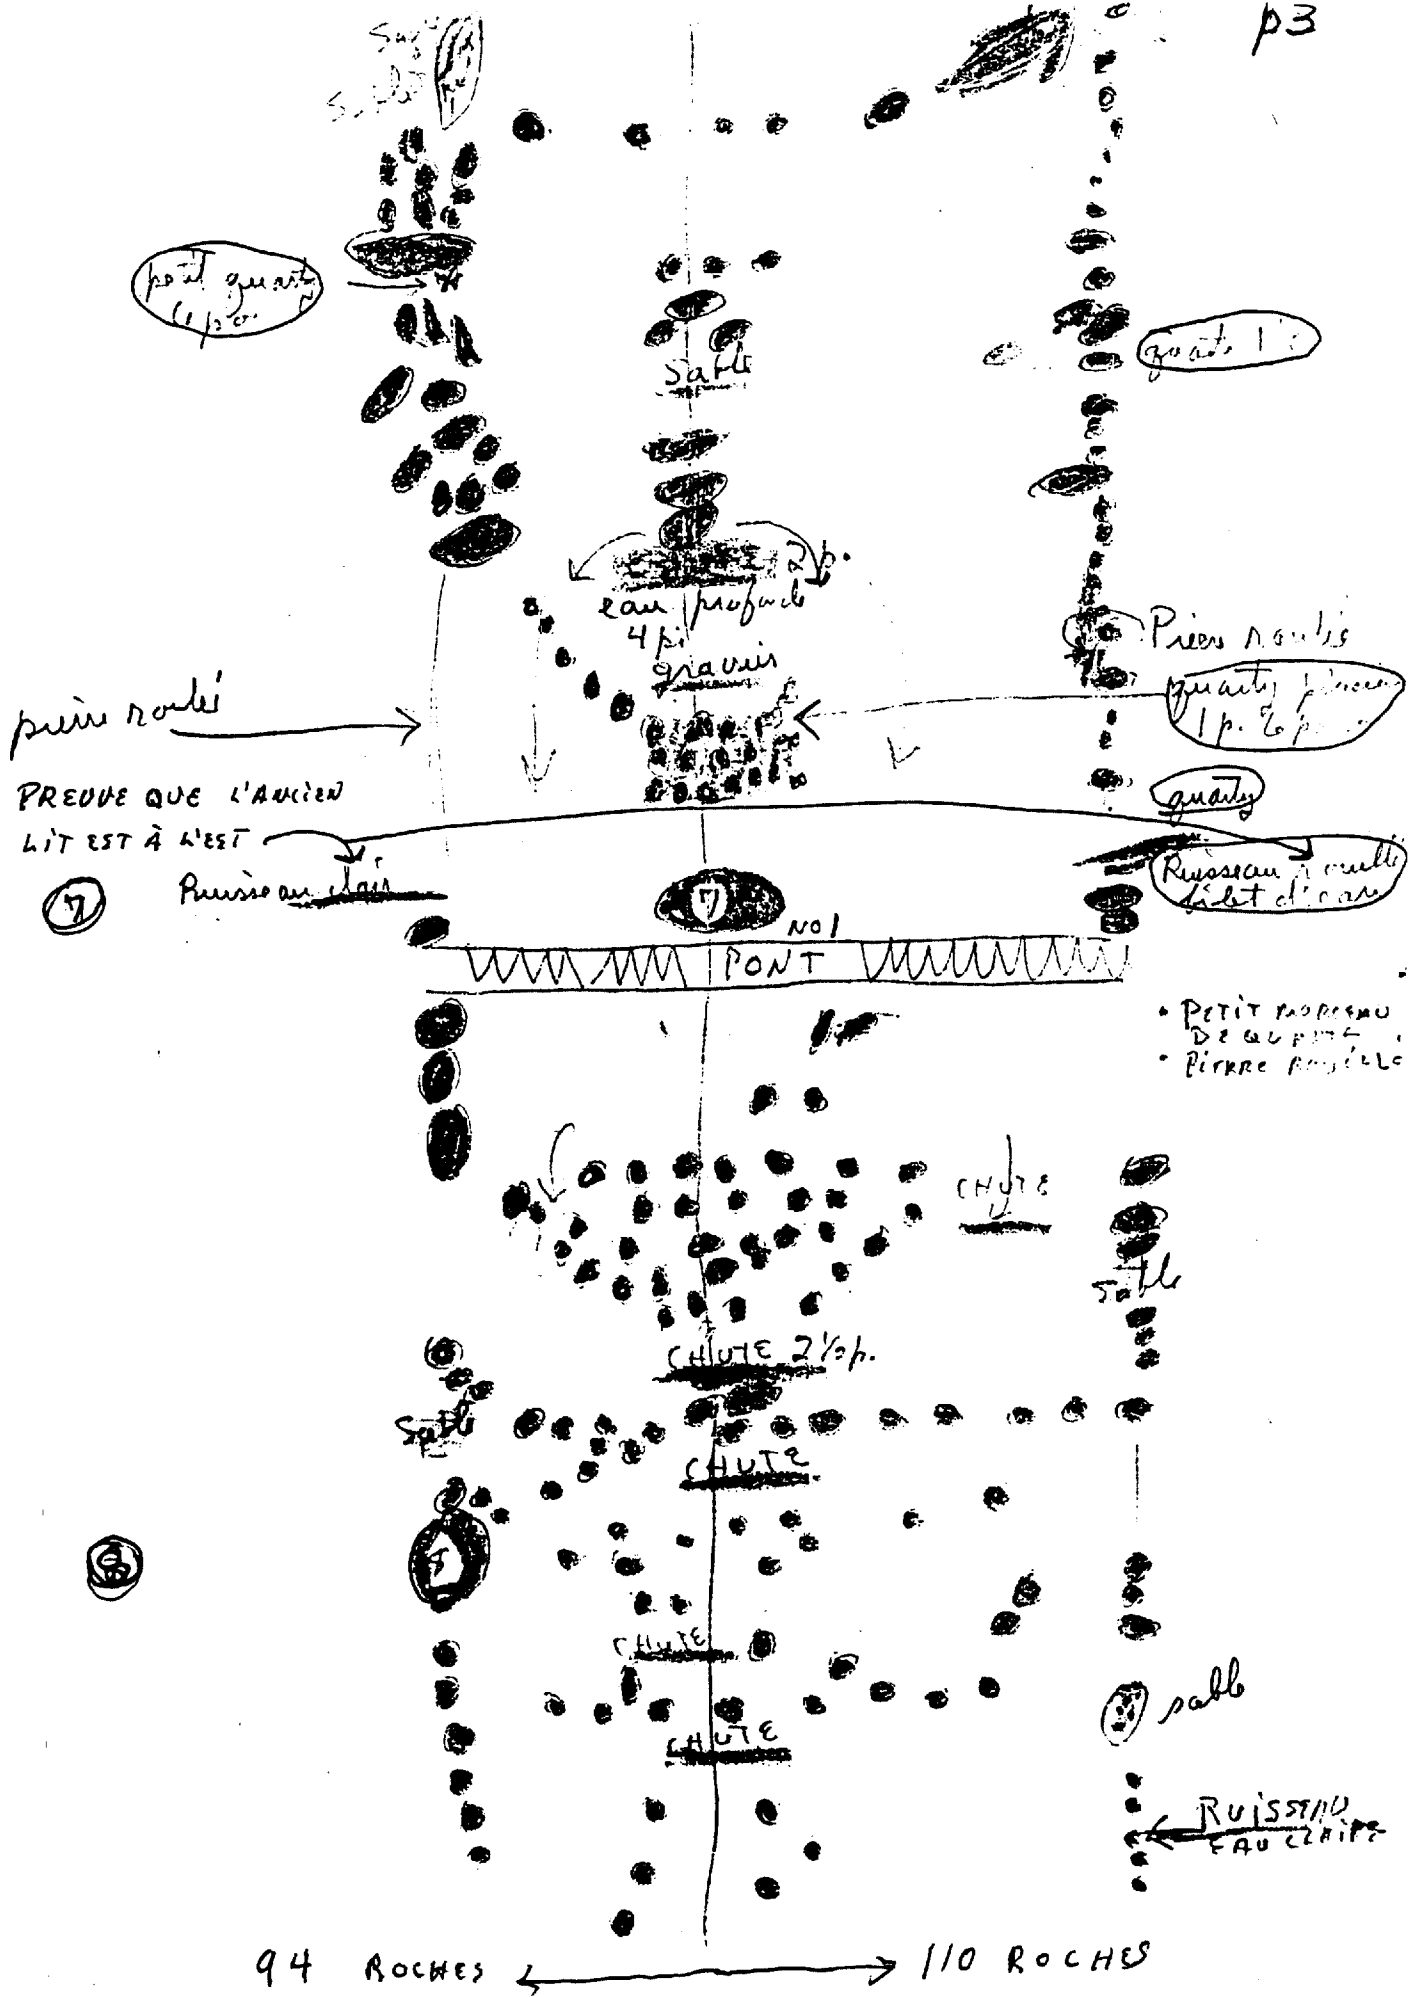 p3
Sable
petit quartz
Sable
2 p.
eau profonde
4 pi
gravier
Pierre roulés
quartz
1 p.
pierre roulés
PREUVE QUE L'ANCIEN
LIT EST À L'EST
quartz
7
Ruisseau clair
7
Ruisseau rouillé
filet d'eau
NO1
PONT
• PETIT MORCEAU
DE QUARTZ
• PIERRE
CHUTE
Sable
CHUTE 2 1/2 p.
Sable
CHUTE
8
CHUTE
sable
CHUTE
RUISSEAU
EAU CLAIRE
94 ROCHES
110 ROCHES